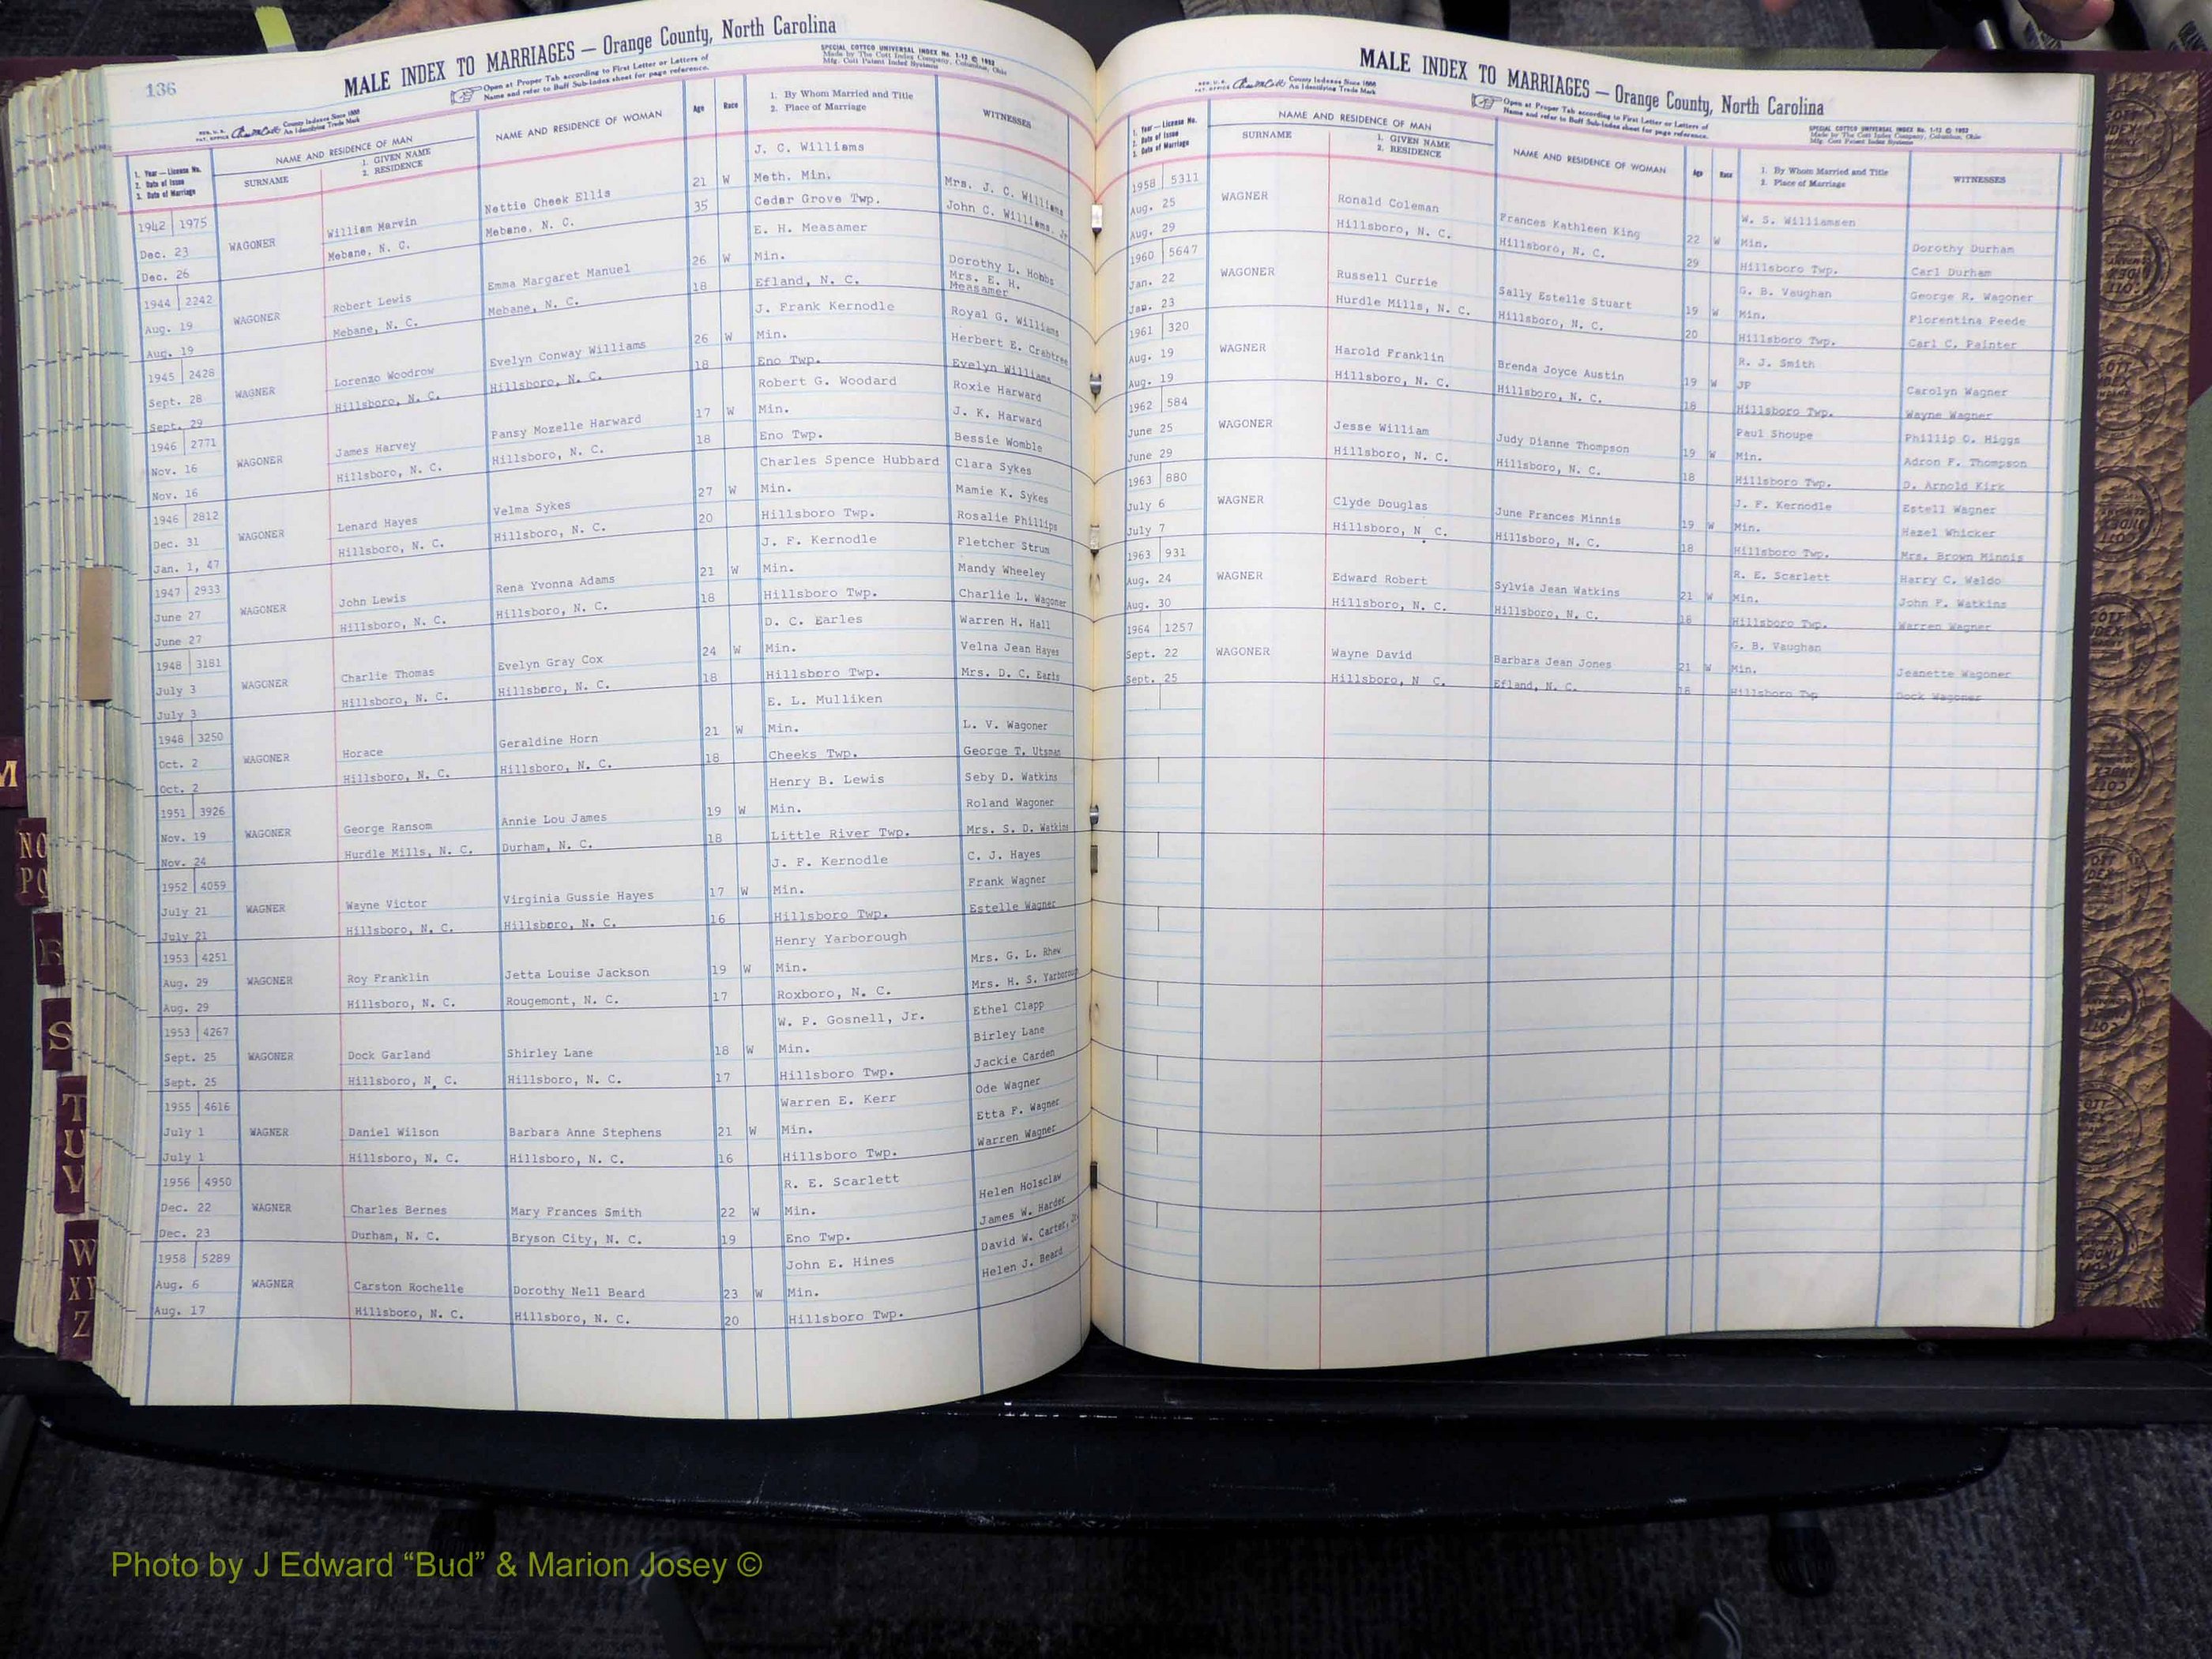 136
MALE INDEX TO MARRIAGES — Orange County, North Carolina
Open at Proper Tab according to First Letter or Letters of
Name and refer to Buff Sub-Index sheet for page reference.
SPECIAL COTTCO UNIVERSAL INDEX No. 1-12 © 1952
Made by The Cott Index Company, Columbus, Ohio
Mfg. Cott Patent Index Systems
County Indexes Since 1888
An Identifying Trade Mark
1. Year — License No.
2. Date of Issue
3. Date of Marriage
NAME AND RESIDENCE OF MAN
SURNAME
1. GIVEN NAME
2. RESIDENCE
NAME AND RESIDENCE OF WOMAN
Age
Race
1. By Whom Married and Title
2. Place of Marriage
WITNESSES
1942 1975 J. C. Williams
Dec. 23 WAGONER William Marvin Nettie Cheek Ellis 21 W Meth. Min. Mrs. J. C. Williams
Dec. 26 Mebane, N. C. Mebane, N. C. 35 Cedar Grove Twp. John C. Williams, Jr
1944 2242 E. H. Measamer
Aug. 19 WAGONER Robert Lewis Emma Margaret Manuel 26 W Min. Dorothy L. Hobbs
Aug. 19 Mebane, N. C. Mebane, N. C. 18 Efland, N. C. Mrs. E. H. Measamer
1945 2428 J. Frank Kernodle Royal G. Williams
Sept. 28 WAGNER Lorenzo Woodrow Evelyn Conway Williams 26 W Min. Herbert E. Crabtree
Sept. 29 Hillsboro, N. C. Hillsboro, N. C. 18 Eno Twp. Evelyn Williams
1946 2771 Robert G. Woodard Roxie Harward
Nov. 16 WAGONER James Harvey Pansy Mozelle Harward 17 W Min. J. K. Harward
Nov. 16 Hillsboro, N. C. Hillsboro, N. C. 18 Eno Twp. Bessie Womble
1946 2812 Charles Spence Hubbard Clara Sykes
Dec. 31 WAGONER Lenard Hayes Velma Sykes 27 W Min. Mamie K. Sykes
Jan. 1, 47 Hillsboro, N. C. Hillsboro, N. C. 20 Hillsboro Twp. Rosalie Phillips
1947 2933 J. F. Kernodle Fletcher Strum
June 27 WAGONER John Lewis Rena Yvonna Adams 21 W Min. Mandy Wheeley
June 27 Hillsboro, N. C. Hillsboro, N. C. 18 Hillsboro Twp. Charlie L. Wagoner
1948 3181 D. C. Earles Warren H. Hall
July 3 WAGONER Charlie Thomas Evelyn Gray Cox 24 W Min. Velna Jean Hayes
July 3 Hillsboro, N. C. Hillsboro, N. C. 18 Hillsboro Twp. Mrs. D. C. Earls
1948 3250 E. L. Mulliken
Oct. 2 WAGONER Horace Geraldine Horn 21 W Min. L. V. Wagoner
Oct. 2 Hillsboro, N. C. Hillsboro, N. C. 18 Cheeks Twp. George T. Utsman
1951 3926 Henry B. Lewis Seby D. Watkins
Nov. 19 WAGONER George Ransom Annie Lou James 19 W Min. Roland Wagoner
Nov. 24 Hurdle Mills, N. C. Durham, N. C. 18 Little River Twp. Mrs. S. D. Watkins
1952 4059 J. F. Kernodle C. J. Hayes
July 21 WAGNER Wayne Victor Virginia Gussie Hayes 17 W Min. Frank Wagner
July 21 Hillsboro, N. C. Hillsboro, N. C. 16 Hillsboro Twp. Estelle Wagner
1953 4251 Henry Yarborough
Aug. 29 WAGONER Roy Franklin Jetta Louise Jackson 19 W Min. Mrs. G. L. Rhew
Aug. 29 Hillsboro, N. C. Rougemont, N. C. 17 Roxboro, N. C. Mrs. H. S. Yarborough
1953 4267 W. P. Gosnell, Jr. Ethel Clapp
Sept. 25 WAGONER Dock Garland Shirley Lane 18 W Min. Birley Lane
Sept. 25 Hillsboro, N. C. Hillsboro, N. C. 17 Hillsboro Twp. Jackie Carden
1955 4616 Warren E. Kerr Ode Wagner
July 1 WAGNER Daniel Wilson Barbara Anne Stephens 21 W Min. Etta F. Wagner
July 1 Hillsboro, N. C. Hillsboro, N. C. 16 Hillsboro Twp. Warren Wagner
1956 4950 R. E. Scarlett
Dec. 22 WAGNER Charles Bernes Mary Frances Smith 22 W Min. Helen Holsclaw
Dec. 23 Durham, N. C. Bryson City, N. C. 19 Eno Twp. James W. Harder
1958 5289 John E. Hines David W. Carter, Jr
Aug. 6 WAGNER Carston Rochelle Dorothy Nell Beard 23 W Min. Helen J. Beard
Aug. 17 Hillsboro, N. C. Hillsboro, N. C. 20 Hillsboro Twp.
MALE INDEX TO MARRIAGES — Orange County, North Carolina
County Indexes Since 1888
An Identifying Trade Mark
Open at Proper Tab according to First Letter or Letters of
Name and refer to Buff Sub-Index sheet for page reference.
SPECIAL COTTCO UNIVERSAL INDEX No. 1-12 © 1952
Made by The Cott Index Company, Columbus, Ohio
Mfg. Cott Patent Index Systems
1. Year — License No.
2. Date of Issue
3. Date of Marriage
NAME AND RESIDENCE OF MAN
SURNAME
1. GIVEN NAME
2. RESIDENCE
NAME AND RESIDENCE OF WOMAN
Age
Race
1. By Whom Married and Title
2. Place of Marriage
WITNESSES
1958 5311 W. S. Williamsen
Aug. 25 WAGNER Ronald Coleman Frances Kathleen King 22 W Min. Dorothy Durham
Aug. 29 Hillsboro, N. C. Hillsboro, N. C. 29 Hillsboro Twp. Carl Durham
1960 5647 G. B. Vaughan George R. Wagoner
Jan. 22 WAGONER Russell Currie Sally Estelle Stuart 19 W Min. Florentina Peede
Jan. 23 Hurdle Mills, N. C. Hillsboro, N. C. 20 Hillsboro Twp. Carl C. Painter
1961 320 R. J. Smith
Aug. 19 WAGNER Harold Franklin Brenda Joyce Austin 19 W JP Carolyn Wagner
Aug. 19 Hillsboro, N. C. Hillsboro, N. C. 18 Hillsboro Twp. Wayne Wagner
1962 584 Paul Shoupe Phillip O. Higgs
June 25 WAGONER Jesse William Judy Dianne Thompson 19 W Min. Adron F. Thompson
June 29 Hillsboro, N. C. Hillsboro, N. C. 18 Hillsboro Twp. D. Arnold Kirk
1963 880 J. F. Kernodle Estell Wagner
July 6 WAGNER Clyde Douglas June Frances Minnis 19 W Min. Hazel Whicker
July 7 Hillsboro, N. C. Hillsboro, N. C. 18 Hillsboro Twp. Mrs. Brown Minnis
1963 931 R. E. Scarlett Harry C. Waldo
Aug. 24 WAGNER Edward Robert Sylvia Jean Watkins 21 W Min. John F. Watkins
Aug. 30 Hillsboro, N. C. Hillsboro, N. C. 18 Hillsboro Twp. Warren Wagner
1964 1257 G. B. Vaughan
Sept. 22 WAGONER Wayne David Barbara Jean Jones 21 W Min. Jeanette Wagoner
Sept. 25 Hillsboro, N C. Efland, N. C. 18 Hillsboro Twp Dock Wagoner
M
NO
PQ
R
S
T
U
V
W
XY
Z
Photo by J Edward “Bud” & Marion Josey ©